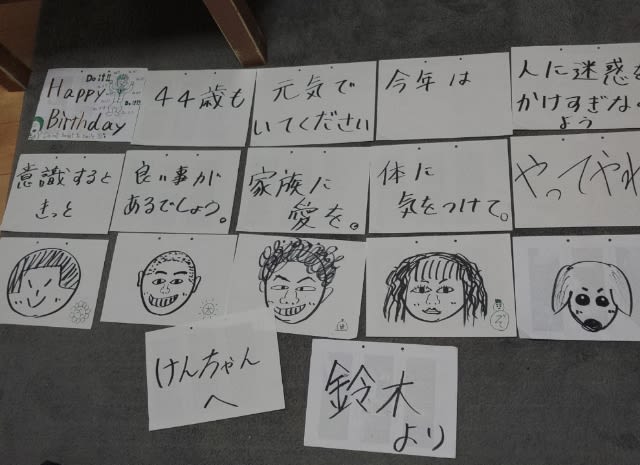 Do it!!
Happy
Do it!!
Birthday
44歳も
元気で
いてください
今年は
人に迷惑を
かけすぎな
よう
意識すると
きっと
良い事が
あるでしょう。
家族に
愛を。
体に
気をつけて。
やってやれ
けんちゃん
へ
鈴木
より